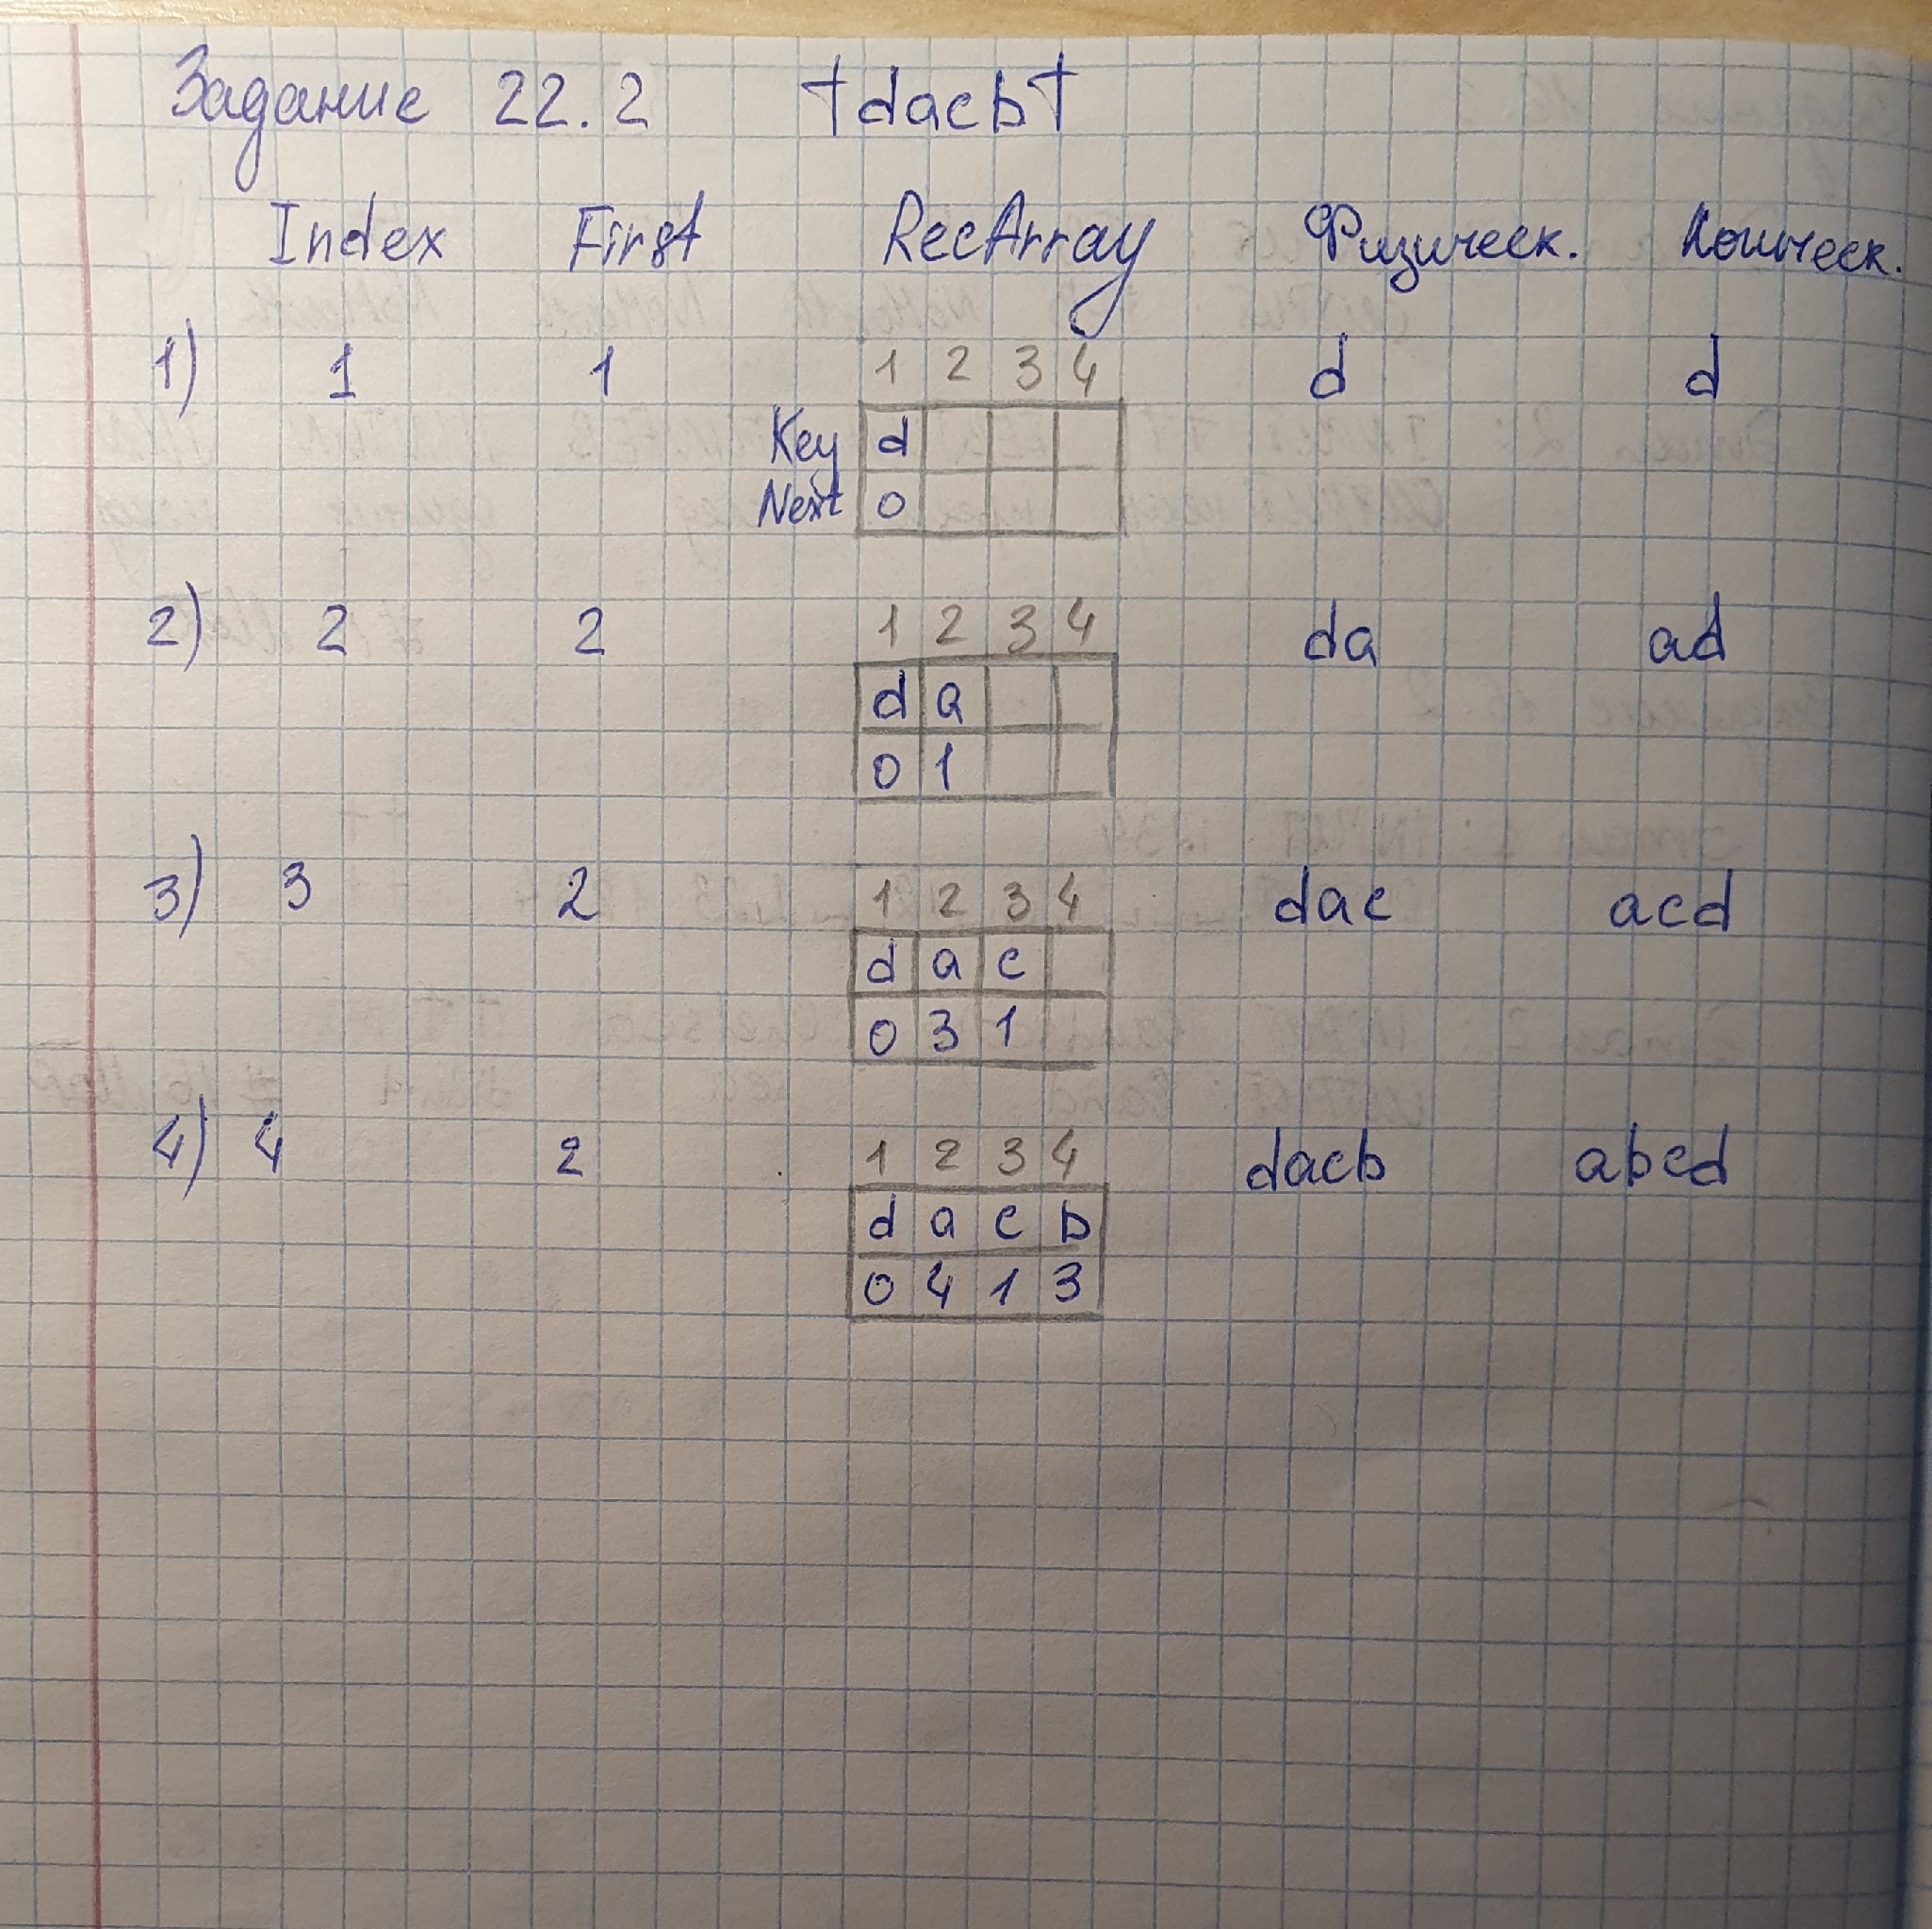 Задание 22.2 †dacb†
Index First RecArray Физическ. Логическ.
1) 1 1 1 2 3 4 d d
Key d
Next 0
2) 2 2 1 2 3 4 da ad
d a
0 1
3) 3 2 1 2 3 4 dac acd
d a c
0 3 1
4) 4 2 1 2 3 4 dacb abcd
d a c b
0 4 1 3